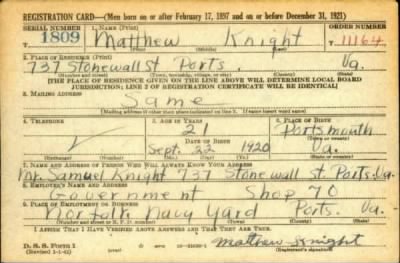 REGISTRATION CARD—(Men born on or after February 17, 1897 and on or before December 31, 1921)
SERIAL NUMBER 1. NAME (Print) ORDER NUMBER
1809 Matthew Knight 11164
(First) (Middle) (Last)
2. PLACE OF RESIDENCE (Print)
737 Stonewall St Ports. Va.
(Number and street) (Town, township, village, or city) (County) (State)
[THE PLACE OF RESIDENCE GIVEN ON THE LINE ABOVE WILL DETERMINE LOCAL BOARD
JURISDICTION; LINE 2 OF REGISTRATION CERTIFICATE WILL BE IDENTICAL]
3. MAILING ADDRESS
Same
[Mailing address if other than place indicated on line 2. If same insert word same]
4. TELEPHONE 5. AGE IN YEARS 6. PLACE OF BIRTH
21 Portsmouth
DATE OF BIRTH (Town or county)
Sept. 22 1920 Va.
(Exchange) (Number) (Mo.) (Day) (Yr.) (State or country)
7. NAME AND ADDRESS OF PERSON WHO WILL ALWAYS KNOW YOUR ADDRESS
Mr. Samuel Knight 737 Stonewall St. Ports. Va.
8. EMPLOYER'S NAME AND ADDRESS
Government Shop 70
9. PLACE OF EMPLOYMENT OR BUSINESS
Norfolk Navy Yard Ports. Va.
(Number and street or R. F. D. number) (Town) (County) (State)
I AFFIRM THAT I HAVE VERIFIED ABOVE ANSWERS AND THAT THEY ARE TRUE.
D. S. S. FORM 1 Matthew Knight
(Registrant's signature)